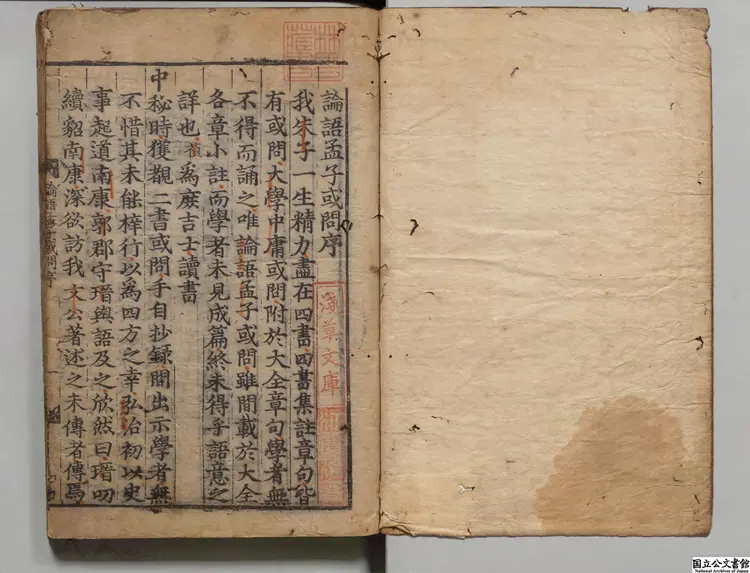 論語孟子或問序
我朱子一生精力盡在四書四書集註章句皆
有或問大學中庸或問附於大全章句學者無
不得而誦之唯論語孟子或問雖間載於大全
各章小註而學者未見成篇終未得乎語意之
詳也禎爲庶吉士讀書
中秘時獲觀二書或問手自抄錄間出示學者無
不惜其未能梓行以爲四方之幸弘治初以史
事起道南康郭郡守瑨與語及之欣然曰瑨叨
續貂南康深欲訪我文公著述之未傳者傳焉
淺草文庫
国立公文書館
National Archives of Japan